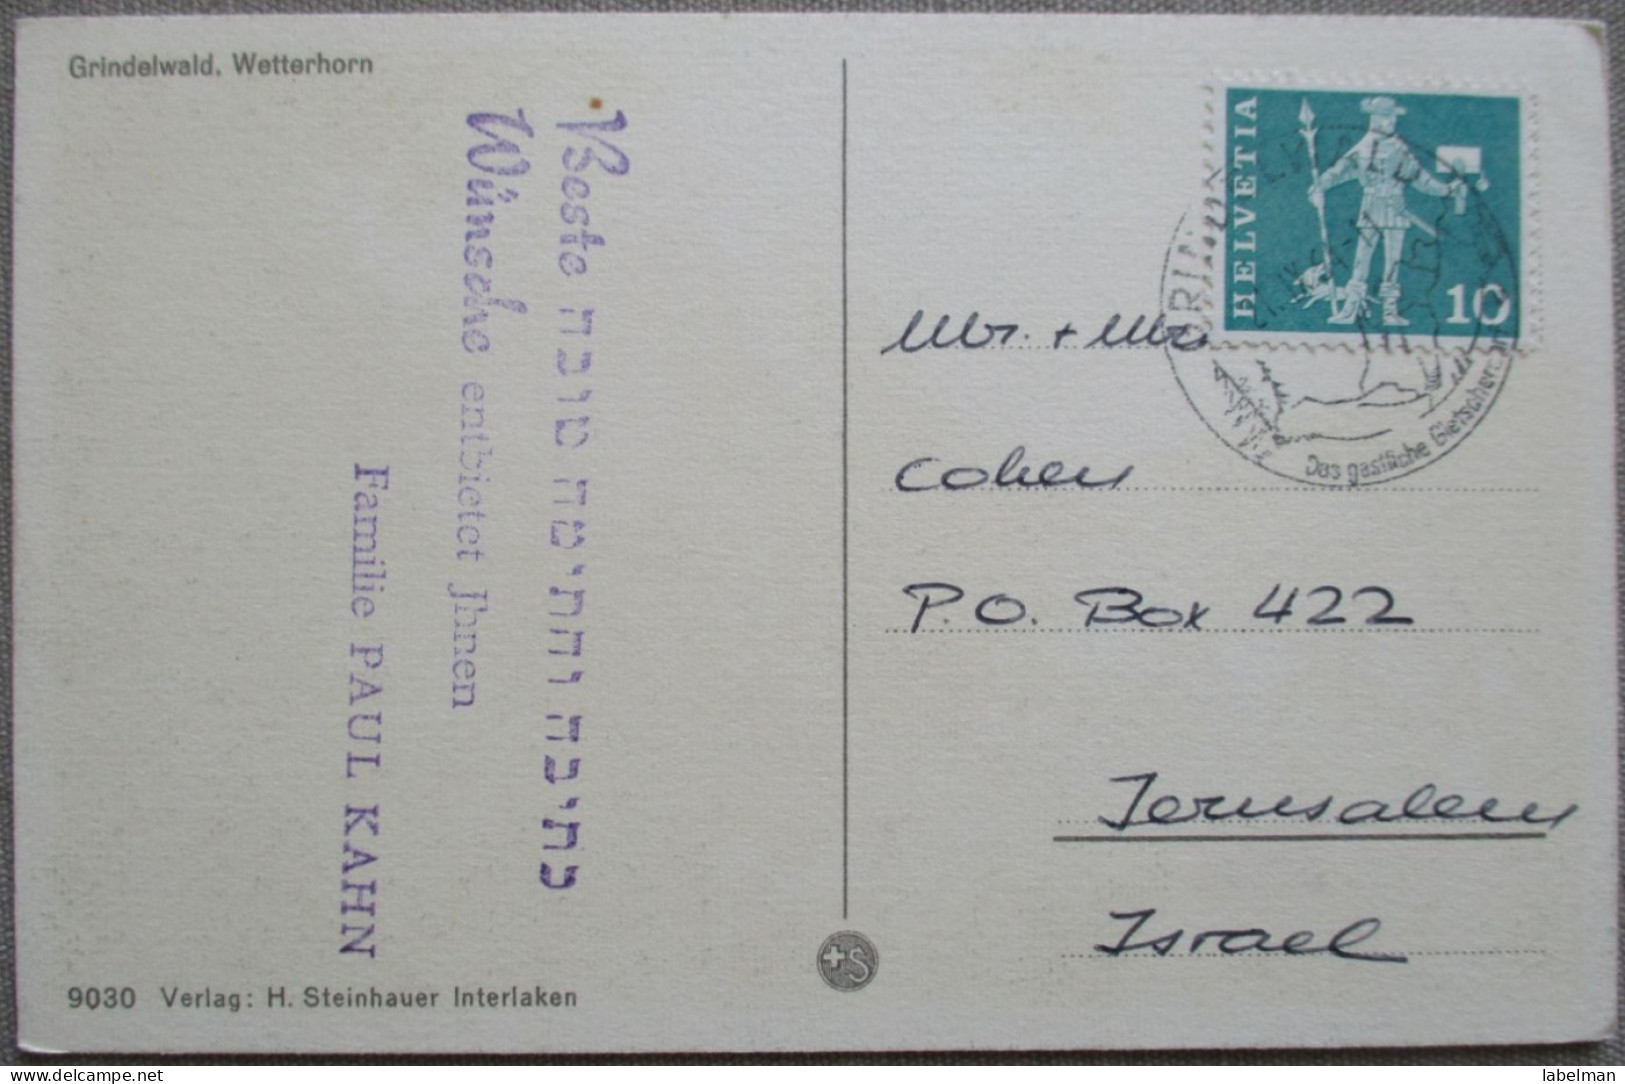 Grindelwald, Wetterhorn
Beste כתיבה וחתימה טובה
Wünsche entbietet Jhnen
Familie PAUL KAHN
9030 Verlag: H. Steinhauer Interlaken
+S
HELVETIA
10
GRINDELWALD
Das gastliche Gletscherdorf
Mr. + Mrs
Cohen
P.O. Box 422
Jerusalem
Israel
labelman
delcampe.net